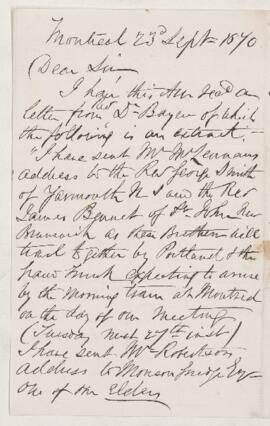 Montreal 23d Sept 1870
Dear Sir
I have this day read a
letter from Revd Dr Bayne of which
the following is an extract,
"I have sent Mr McLennans
address to the Rev George Smith
of Yarmouth N S and the Rev
James Bennet of St. John New
Brunswick as these Brethren will
travel together by Portland & the
Grand Trunk expecting to arrive
by the morning train at Montreal
on the day of our meeting
(Tuesday next 27th inst)
I have sent Mr Robertson's
address to Monson Esq
one of our Elders